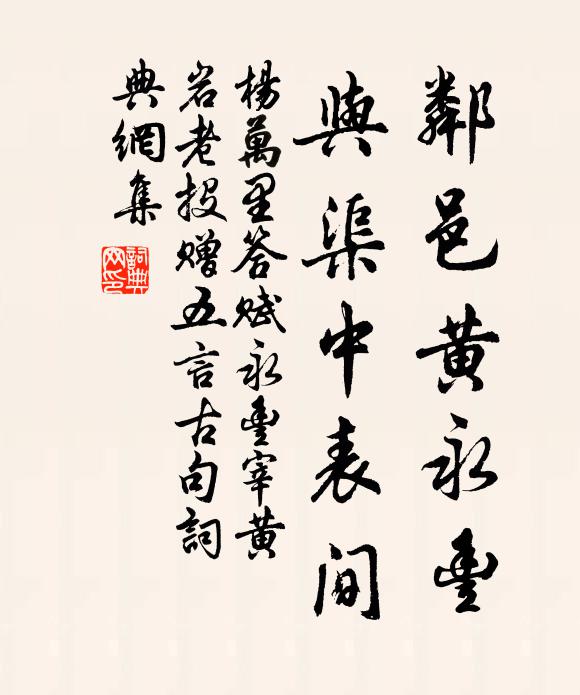 鄰邑黃永豐
與渠中表間
楊萬里答賦永豐宰黃
岩老投贈五言古句詞
典網集
詞典網印